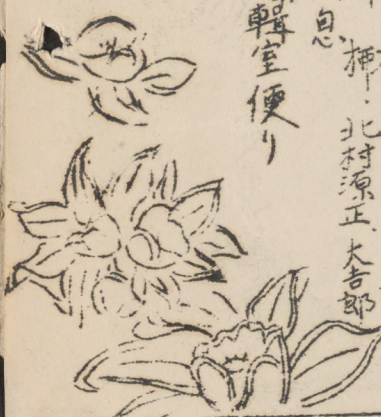 挿・北村源正、大吉郎
息
輯室便り